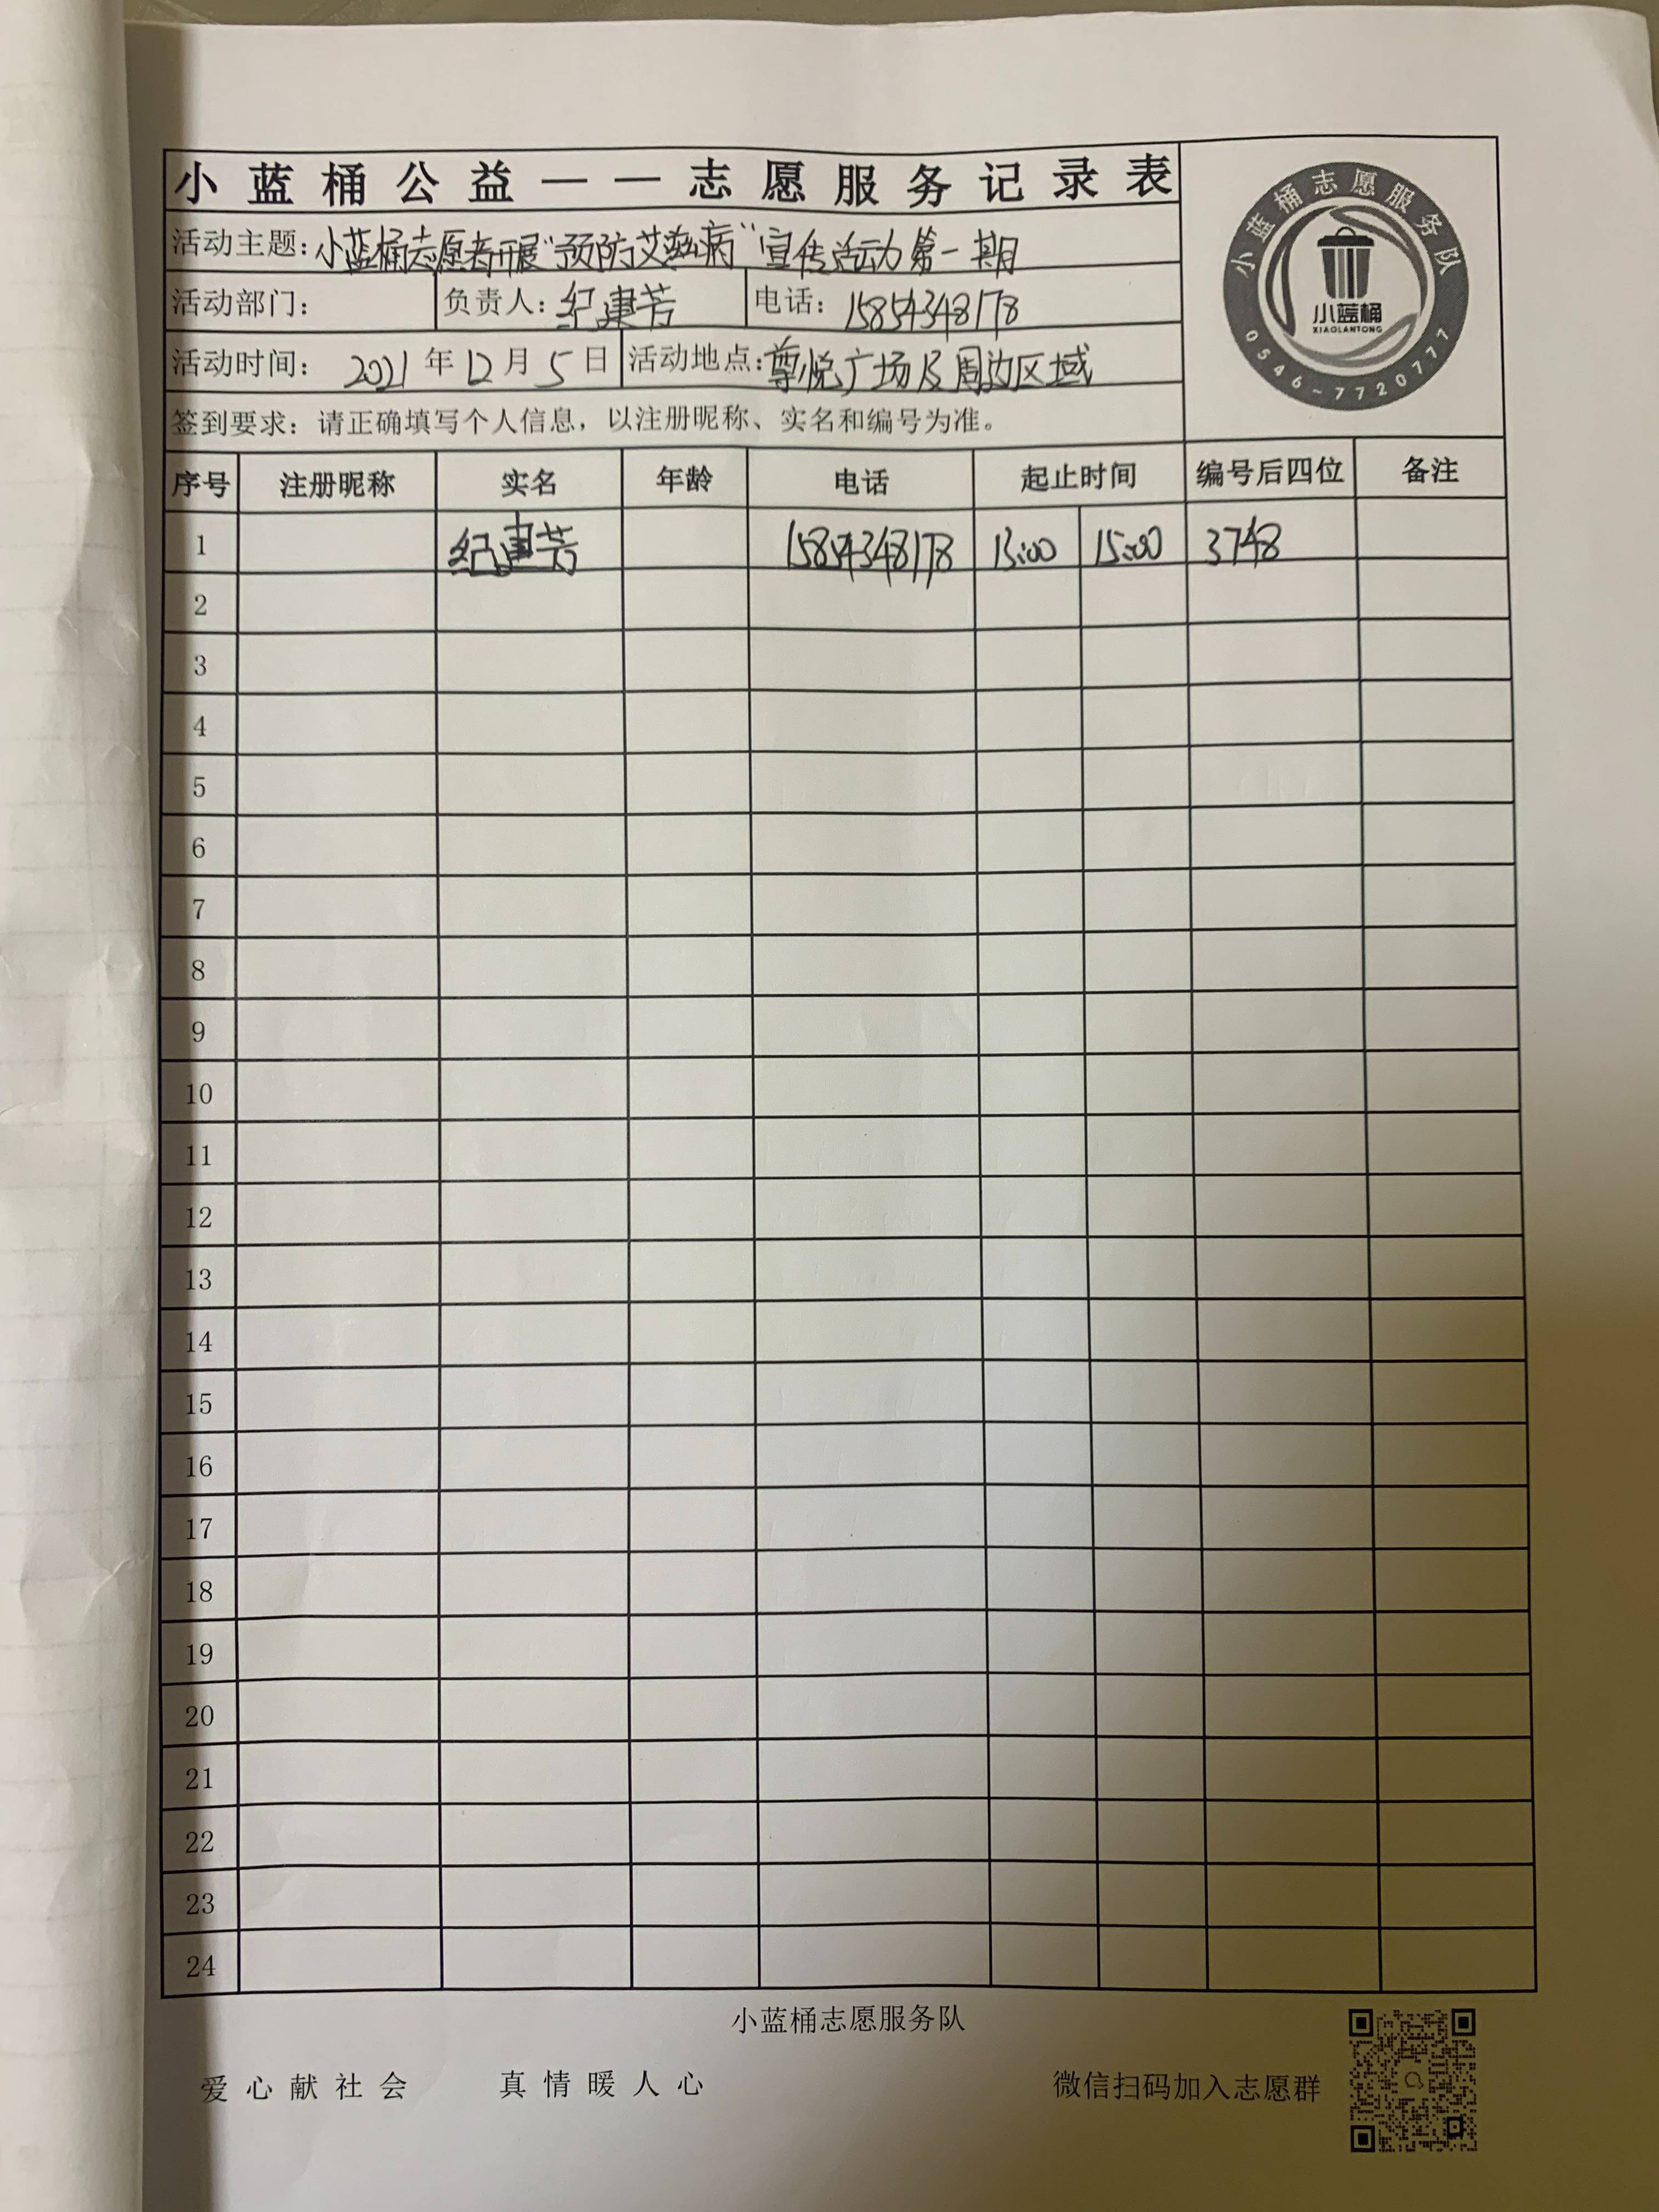 小蓝桶公益——志愿服务记录表
小蓝桶志愿服务队
小蓝桶
XIAOLANTONG
0546-7720777
活动主题：小蓝桶志愿者开展“预防艾滋病”宣传活动第一期
活动部门： 负责人：纪建芳 电话：15854348178
活动时间：2021年12月5日 活动地点：尊悦广场及周边区域
签到要求：请正确填写个人信息，以注册昵称、实名和编号为准。
序号 注册昵称 实名 年龄 电话 起止时间 编号后四位 备注
1 纪建芳 15854348178 13:00 15:00 3748
2
3
4
5
6
7
8
9
10
11
12
13
14
15
16
17
18
19
20
21
22
23
24
小蓝桶志愿服务队
爱心献社会 真情暖人心 微信扫码加入志愿群